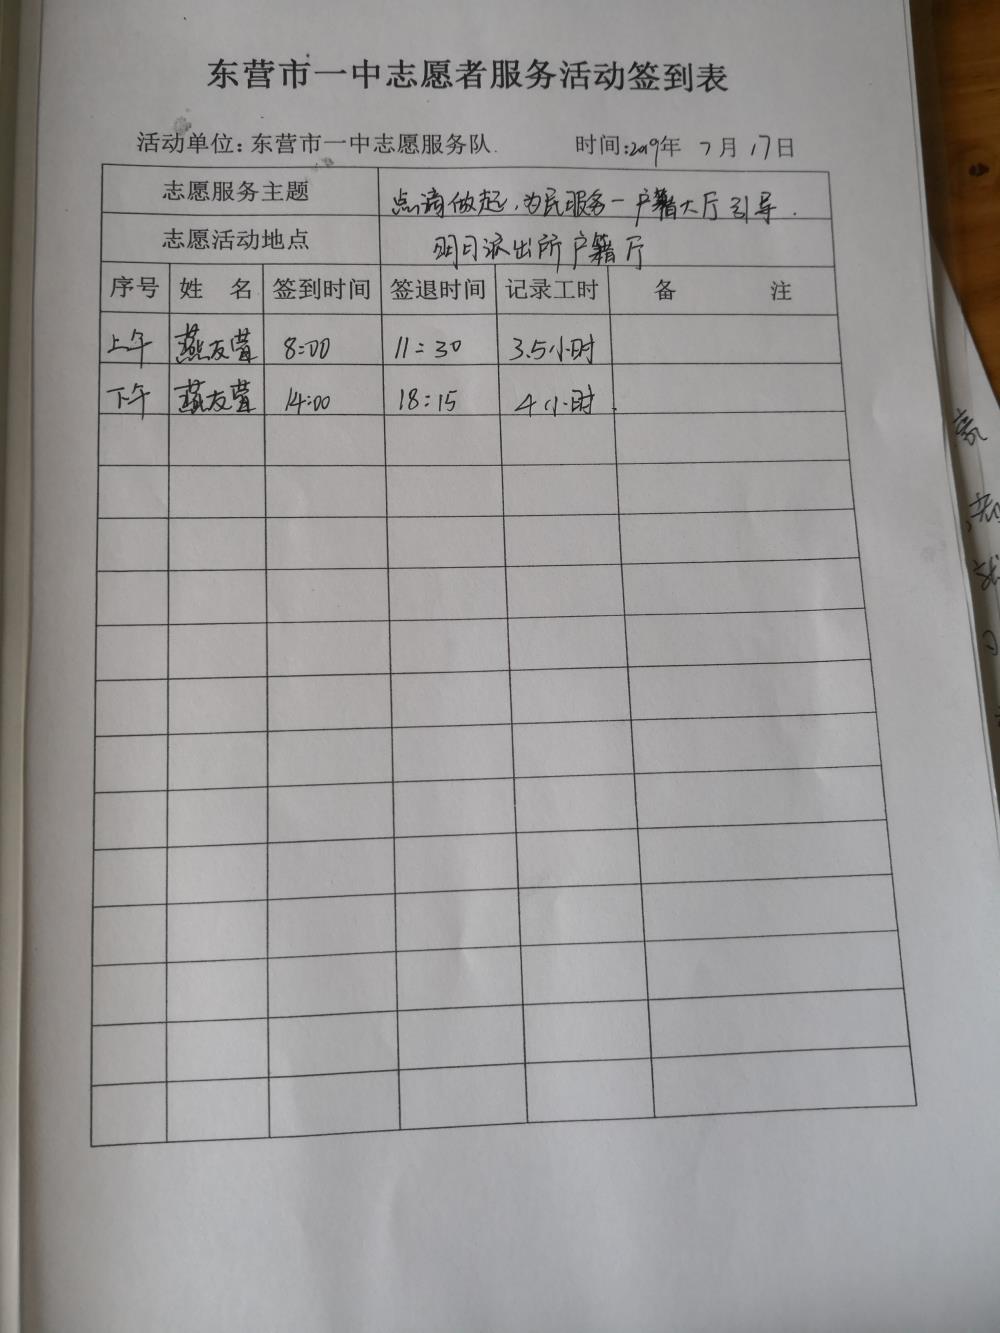 东营市一中志愿者服务活动签到表
活动单位：东营市一中志愿服务队. 时间：2019年 7月 17日
志愿服务主题 点滴做起，为民服务—户籍大厅引导.
志愿活动地点 明月派出所户籍厅
序号 姓 名 签到时间 签退时间 记录工时 备 注
上午 燕友萱 8:00 11:30 3.5小时
下午 燕友萱 14:00 18:15 4小时.